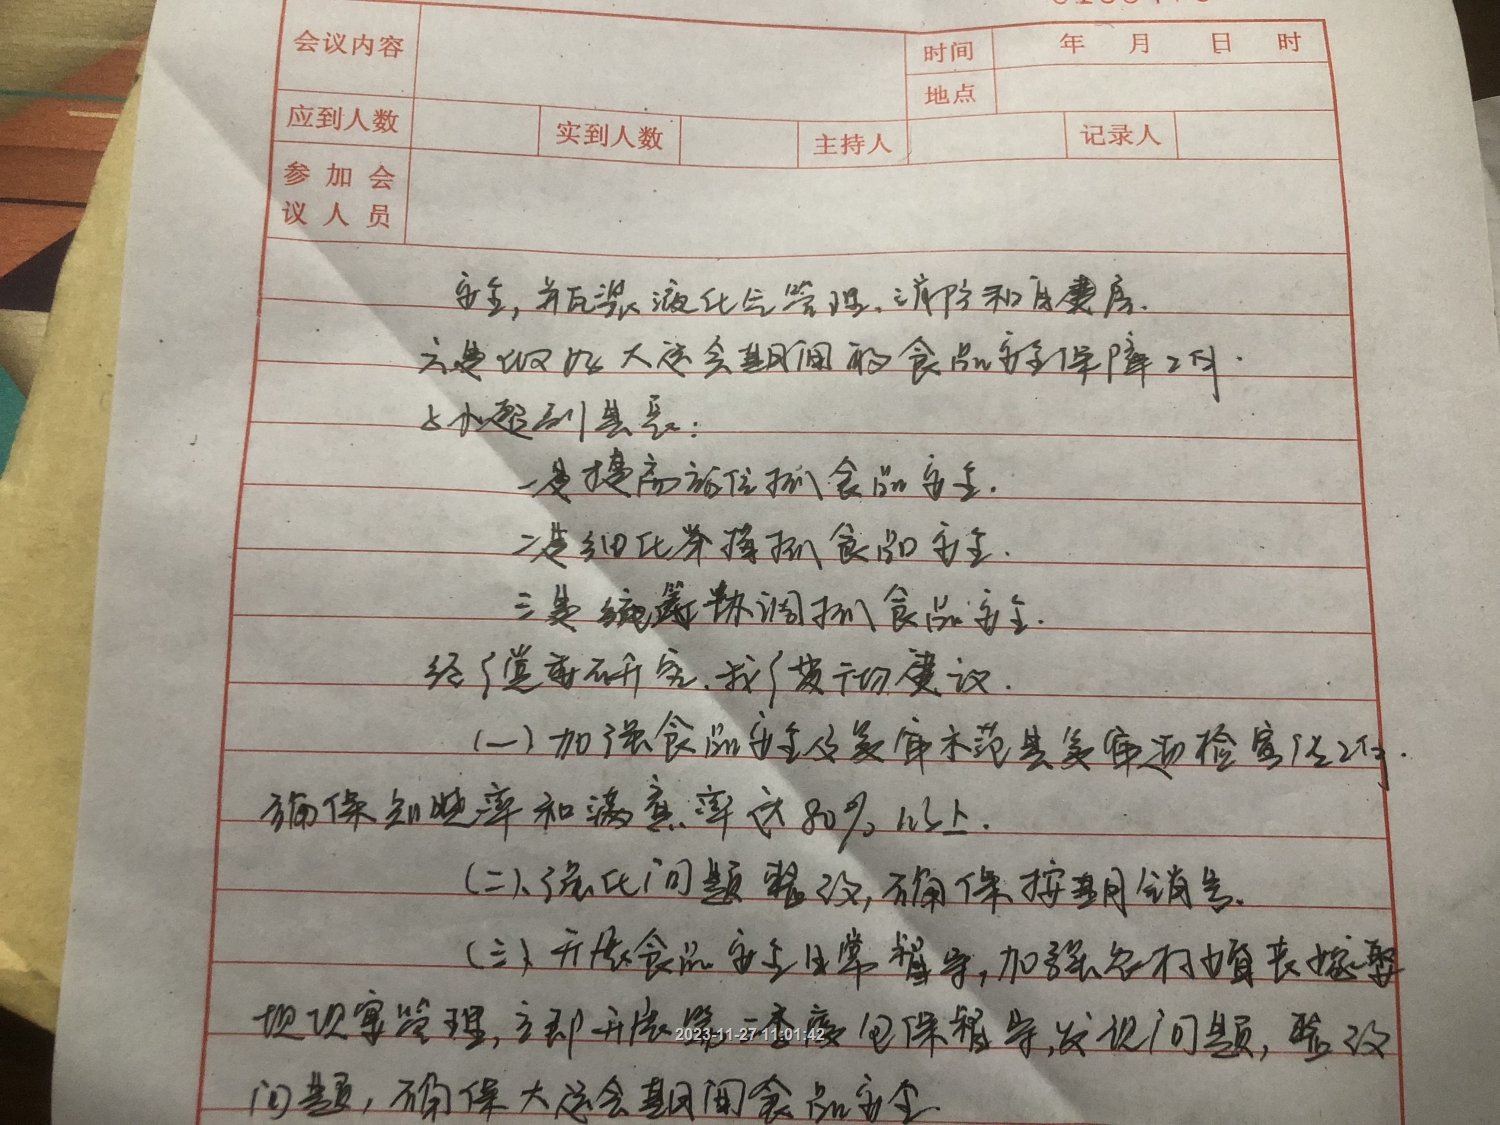 会议内容
时间 年 月 日 时
地点
应到人数 实到人数 主持人 记录人
参加会
议人员
安全,并瓦装液化气管理、消防和自建房.
六是做好大运会期间的食品安全保障工作.
副县长:
一是提高站位抓食品安全.
二是细化举措抓食品安全.
三是统筹协调抓食品安全.
经党委研究,我建议.
(一)加强食品安全及复审示范县复审迎检宣传工作.
确保知晓率和满意率达80%以上.
(二)、强化问题整改,确保按期销号.
(三)、开展食品安全日常督导,加强农村婚丧嫁娶
坝坝宴管理,立即开展第二季度包保督导,发现问题,整改
问题,确保大运会期间食品安全.
2023-11-27 11:01:42